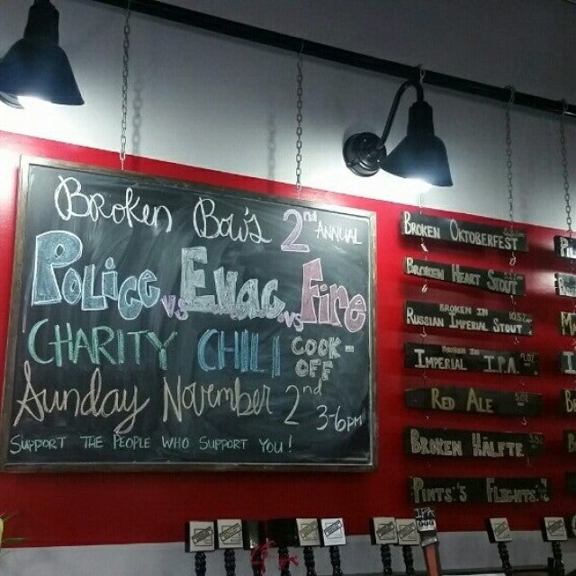 Broken Bow's 2nd ANNUAL
POLiCE vs EVAC vs FiRE
CHARITY CHILI COOK-
OFF
Sunday November 2nd
3-6pm
SUPPORT THE PEOPLE WHO SUPPORT YOU!
BROKEN OKTOBERFEST
BROKEN HEART STOUT
BROKEN IN
RUSSIAN IMPERIAL STOUT
IMPERIAL I.P.A.
RED ALE
BROKEN HÄLFTE
PINTS:5 FLIGHTS:
IPA